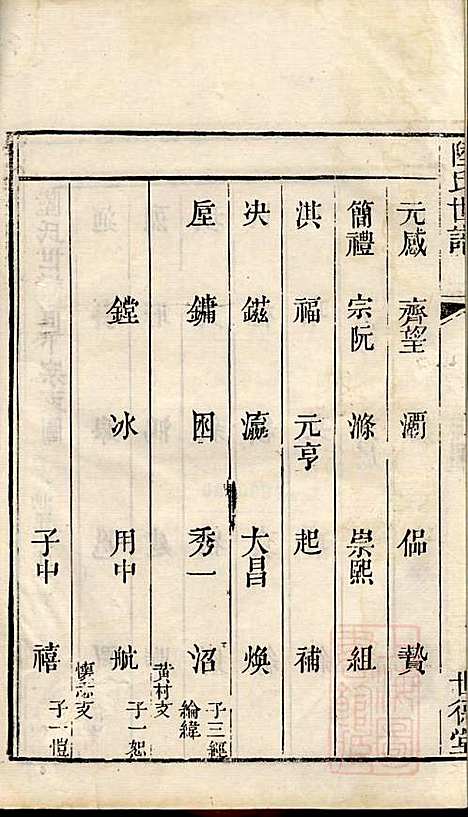 陸氏世譜
世德堂
元感 齊望 灞 侶 贄
簡禮 宗阮 滌 崇熙 組
淇 福 元亨 起 補
決 鎡 瀛 大昌 煥
垕 鏞 困 秀一 沼 子三經綸緯
鏜 冰 用中 航 黃村支 子一恕
子中 禧 懷志支 子一愷